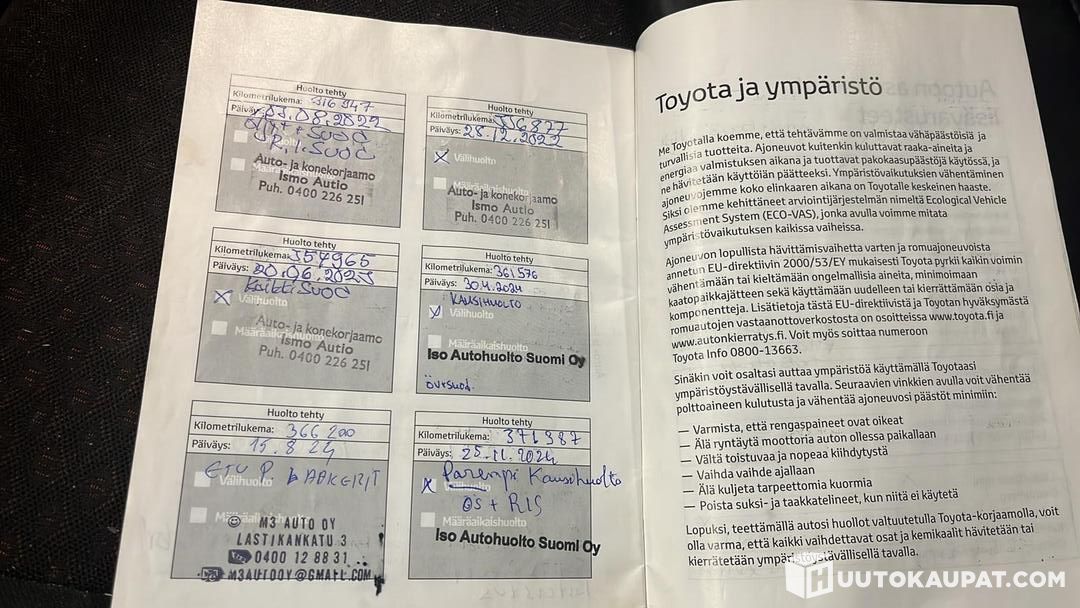 Huolto tehty
Kilometrilukema: 316 947
Päiväys: 08.2022
+ SUOD
R.I.SUOD
Auto- ja konekorjaamo
Ismo Autio
Puh. 0400 226 251
Huolto tehty
Kilometrilukema: 336877
Päiväys: 28.12.2022
Välihuolto
Määräaikaishuolto
Auto- ja konekorjaamo
Ismo Autio
Puh. 0400 226 251
Huolto tehty
Kilometrilukema: 354965
Päiväys: 20.06.2023
Kaikki SUOD
Välihuolto
Määräaikaishuolto
Auto- ja konekorjaamo
Ismo Autio
Puh. 0400 226 251
Huolto tehty
Kilometrilukema: 361576
Päiväys: 30.4.2024
KAUSIHUOLTO
Välihuolto
Määräaikaishuolto
Iso Autohuolto Suomi Oy
Huolto tehty
Kilometrilukema: 366 200
Päiväys: 15.8.24
ETU
Välihuolto
Määräaikaishuolto
M3 AUTO OY
LASTIKANKATU 3
0400 12 88 31
M3AUTOOY@GMAIL.COM
Huolto tehty
Kilometrilukema: 371987
Päiväys: 25.11.2024
Parempi Kausihuolto
Välihuolto
ÖS + RIS
Määräaikaishuolto
Iso Autohuolto Suomi Oy
Toyota ja ympäristö
Me Toyotalla koemme, että tehtävämme on valmistaa vähäpäästöisiä ja
turvallisia tuotteita. Ajoneuvot kuitenkin kuluttavat raaka-aineita ja
energiaa valmistuksen aikana ja tuottavat pakokaasupäästöjä käytössä, ja
ne hävitetään käyttöiän päätteeksi. Ympäristövaikutuksien vähentäminen
ajoneuvojemme koko elinkaaren aikana on Toyotalle keskeinen haaste.
Siksi olemme kehittäneet arviointijärjestelmän nimeltä Ecological Vehicle
Assessment System (ECO-VAS), jonka avulla voimme mitata
ympäristövaikutuksen kaikissa vaiheissa.
Ajoneuvon lopullista hävittämisvaihetta varten ja romuajoneuvoista
annetun EU-direktiivin 2000/53/EY mukaisesti Toyota pyrkii kaikin voimin
vähentämään tai kieltämään ongelmallisia aineita, minimoimaan
kaatopaikkajätteen sekä käyttämään uudelleen tai kierrättämään osia ja
komponentteja. Lisätietoja tästä EU-direktiivistä ja Toyotan hyväksymästä
romuautojen vastaanottoverkostosta on osoitteissa www.toyota.fi ja
www.autonkierratys.fi. Voit myös soittaa numeroon
Toyota Info 0800-13663.
Sinäkin voit osaltasi auttaa ympäristöä käyttämällä Toyotaasi
ympäristöystävällisellä tavalla. Seuraavien vinkkien avulla voit vähentää
polttoaineen kulutusta ja vähentää ajoneuvosi päästöt minimiin:
— Varmista, että rengaspaineet ovat oikeat
— Älä ryntäytä moottoria auton ollessa paikallaan
— Vältä toistuvaa ja nopeaa kiihdytystä
— Vaihda vaihde ajallaan
— Älä kuljeta tarpeettomia kuormia
— Poista suksi- ja taakkatelineet, kun niitä ei käytetä
Lopuksi, teettämällä autosi huollot valtuutetulla Toyota-korjaamolla, voit
olla varma, että kaikki vaihdettavat osat ja kemikaalit hävitetään tai
kierrätetään ympäristöystävällisellä tavalla.
HUUTOKAUPAT.COM